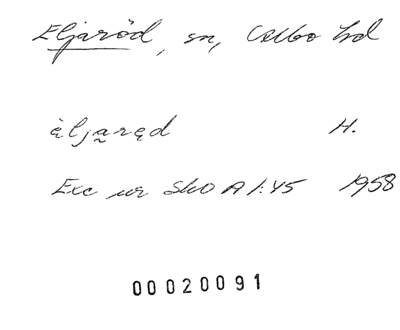 Eljaröd, sn, Albo hd
èljaręd H.
Exc ur SkO A 1:45 1958
00020091